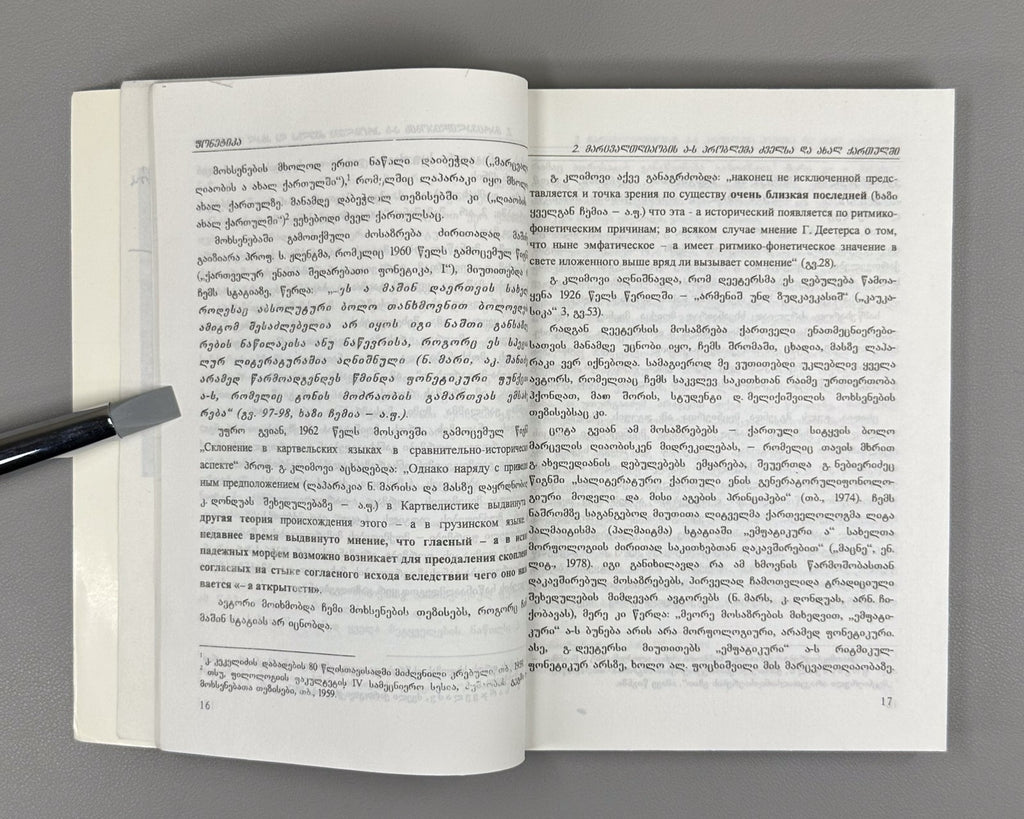 ფონეტიკა
მოხსენების მხოლოდ ერთი ნაწილი დაიბეჭდა („მარცვალ
ღიაობის ა ახალ ქართულში“),¹ რომელშიც ლაპარაკი იყო მხოლ
ახალ ქართულზე. მანამდე დაბეჭდილ თეზისებში კი („ღიაობის
ახალ ქართულში“)² ვეხებოდი ძველ ქართულსაც.
მოხსენებაში გამოთქმული მოსაზრება ძირითადად მაშინ
გაიზიარა პროფ. ს. ჟღენტმა, რომელიც 1960 წელს გამოცემულ წიგნ
(„ქართველურ ენათა შედარებათი ფონეტიკა, I“), მიუთითებდა
ჩემს სტატიაზე, წერდა: „–ეს ა მაშინ დაერთვის სახელ
როდესაც აბსოლუტური ბოლო თანხმოვნით ბოლოვდე
ამიტომ შესაძლებელია არ იყოს იგი ნაშთი განსაზ
რების ნაწილაკისა ანუ ნაწევრისა, როგორც ეს სპეც
ლურ ლიტერატურაშია აღნიშნული (ნ. მარი, აკ. შანიძ
არამედ წარმოადგენდეს წმინდა ფონეტიკური ფუნქც
ა-ს, რომელიც ტონის მოძრაობის გამართვას ემსახ
რება“ (გვ. 97-98, ხაზი ჩემია – ა.ფ.).
უფრო გვიან, 1962 წელს მოსკოვში გამოცემულ წიგნ
„Склонение в картвельских языках в сравнительно-историческ
аспекте“ პროფ. გ. კლიმოვი აცხადებდა: „Однако наряду с приве
ным предположением (ლაპარაკია ნ. მარისა და მასზე დაყრდნობი
კ. დონდუას შეხედულებაზე – ა.ფ.) в Картвелистике выдвинута
другая теория происхождения этого – а в грузинском языке.
недавнее время выдвинуто мнение, что гласный – а в исх
падежных морфем возможно возникает для преодаления скоплен
согласных на стыке согласного исхода вследствии чего оно наз
вается «– а аткрытости».
ავტორი მოიხმობდა ჩემი მოხსენების თეზისებს, როგორც ჩა
მაშინ სტატიას არ იცნობდა.
¹ კ. კეკელიძის დაბადების 80 წლისთავისადმი მიძღვნილი კრებული, თბ., 1959.
² თსუ, ფილოლოგიის ფაკულტეტის IV სამეცნიერო სესია,
მოხსენებათა თეზისები, თბ., 1959.
16
2. მარცვალთღიაობის ა-ს პრობლემა ძველსა და ახალ ქართულში
გ. კლიმოვი აქვე განაგრძობდა: „наконец не исключенной предс-
тавляется и точка зрения по существу очень близкая последней (ხაზი
ყველგან ჩემია – ა.ფ.) что эта - а исторический появляется по ритмико-
фонетическим причинам; во всяком случае мнение Г. Деетерса о том,
что ныне эмфатическое – а имеет ритмико-фонетическое значение в
свете иложенного выше вряд ли вызывает сомнение“ (გვ.28).
გ. კლიმოვი აღნიშნავდა, რომ დეეტერსმა ეს დებულება წამოა-
ყენა 1926 წელს წერილში – „არმენიშ უნდ ზუდკავკასიშ“ („კაუკა-
სიკა“ 3, გვ.53).
რადგან დეეტერსის მოსაზრება ქართველი ენათმეცნიერები-
სათვის მანამდე უცნობი იყო, ჩემს შრომაში, ცხადია, მასზე ლაპა-
რაკი ვერ იქნებოდა. სამაგიეროდ მე ვუთითებდი უკლებლივ ყველა
ავტორს, რომელთაც ჩემს საკვლევ საკითხთან რაიმე ურთიერთობა
ჰქონდათ, მათ შორის, სტუდენტი დ. მელიქიშვილის მოხსენების
თეზისებსაც კი.
ცოტა გვიან ამ მოსაზრებებს – ქართული სიტყვის ბოლო
მარცვლის ღიაობისკენ მიდრეკილებას, – რომელიც თავის მხრით
გ. ახვლედიანის დებულებებს ემყარება, შეუერთდა გ. ნებიერიძეც
წიგნში „სალიტერატურო ქართული ენის გენერატორულიფონოლო-
გიური მოდელი და მისი აგების პრინციპები“ (თბ., 1974). ჩემს
ნაშრომზე საგანგებოდ მიუთითა ლიტველმა ქართველოლოგმა ლიტა
პალმაიტისმა (პალმაიტმა) სტატიაში „ემფატიკური ა“ სახელთა
მორფოლოგიის ძირითად საკითხებთან დაკავშირებით“ („მაცნე“, ენ.
ლიტ., 1978). იგი განიხილავდა რა ამ ხმოვნის წარმოშობასთან
დაკავშირებულ მოსაზრებებს, პირველად ჩამოთვლიდა ტრადიციული
შეხედულების მიმდევარ ავტორებს (ნ. მარს, კ. დონდუას, არნ. ჩი-
ქობავას), მერე კი წერდა: „მეორე მოსაზრების მიხედვით, „ემფატი-
კური“ ა-ს ბუნება არის არა მორფოლოგიური, არამედ ფონეტიკური.
ასე, გ. დეეტერსი მიუთითებს „ემფატიკური“ ა-ს რიტმიკულ-
ფონეტიკურ არსზე, ხოლო ალ. ფოცხიშვილი მის მარცვალთღიაობაზე.
17